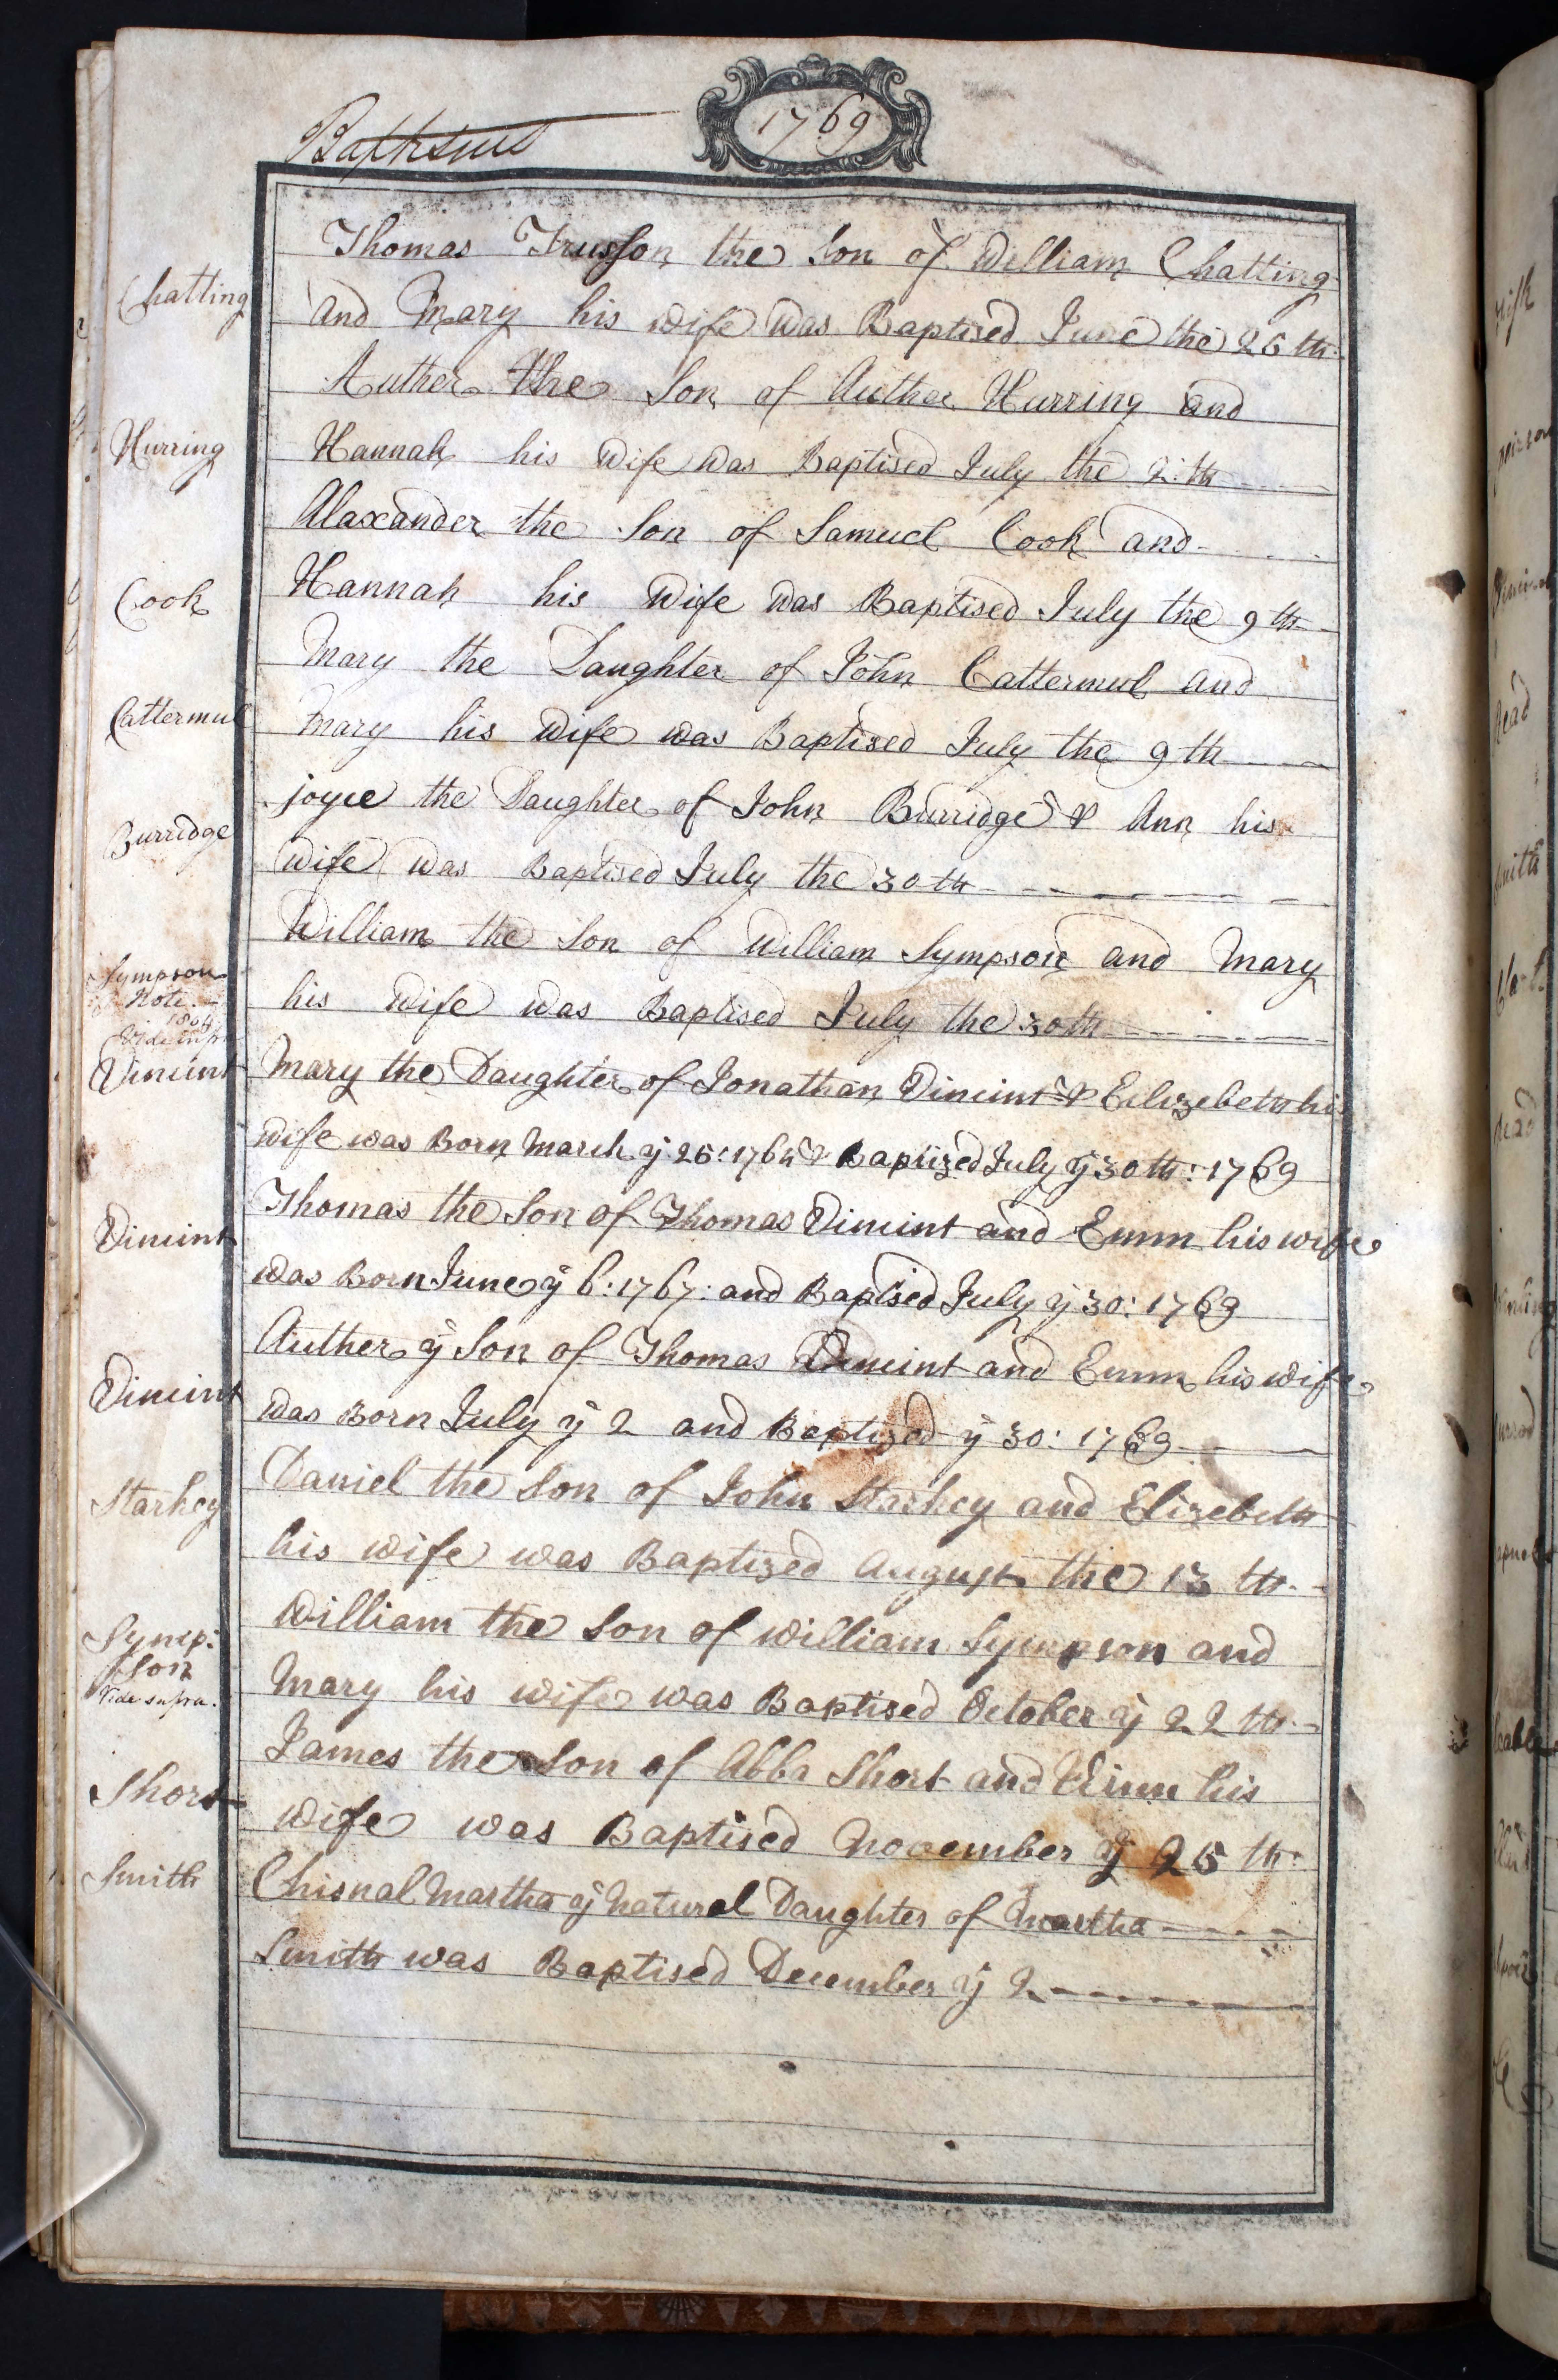 Baptisms
1769
Thomas Trusson the Son of William Chatting
Chatting
and Mary his wife was Baptised June the 25th
Auther the Son of Auther Hurring and
Hurring
Hannah his Wife was Baptised July the 2th
Alaxander the Son of Samuel Cook and
Cook
Hannah his Wife was Baptised July the 9th
Mary the Daughter of John Cattermul and
Cattermul
Mary his Wife was Baptised July the 9th
joyce the Daughter of John Burridge & Ann his
Burridge
Wife was Baptised July the 30th
William the Son of William Sympson and Mary
Sympson
Note.
1804
Vide infra
his Wife was Baptised July the 30th
Vincint
Mary the Daughter of Jonathan Vincint & Elizebeth his
wife was Born March ÿ 26: & Baptized July ÿ 30th: 1769
Thomas the Son of Thomas Vincint and Emm his wife
Vincint
was Born June ÿ 6: 1767: and Baptised July ÿ 30: 1769
Auther ÿ Son of Thomas Vincint and Emm his wife
Vincint
was Born July ÿ 2 and Baptized ÿ 30: 1769
Daniel the Son of John Starkey and Elizebeth
Starkey
his wife was Baptized August the 13th
William the Son of William Sympson and
Symp:
son
Vide supra.
Mary his wife was Baptised October ÿ 22th
James the Son of Abbr Short and his
Short
Wife was Baptised November ÿ 25th
Smith
Chisnal Martha ÿ Natural Daughter of Martha
Smith was Baptised December ÿ 2